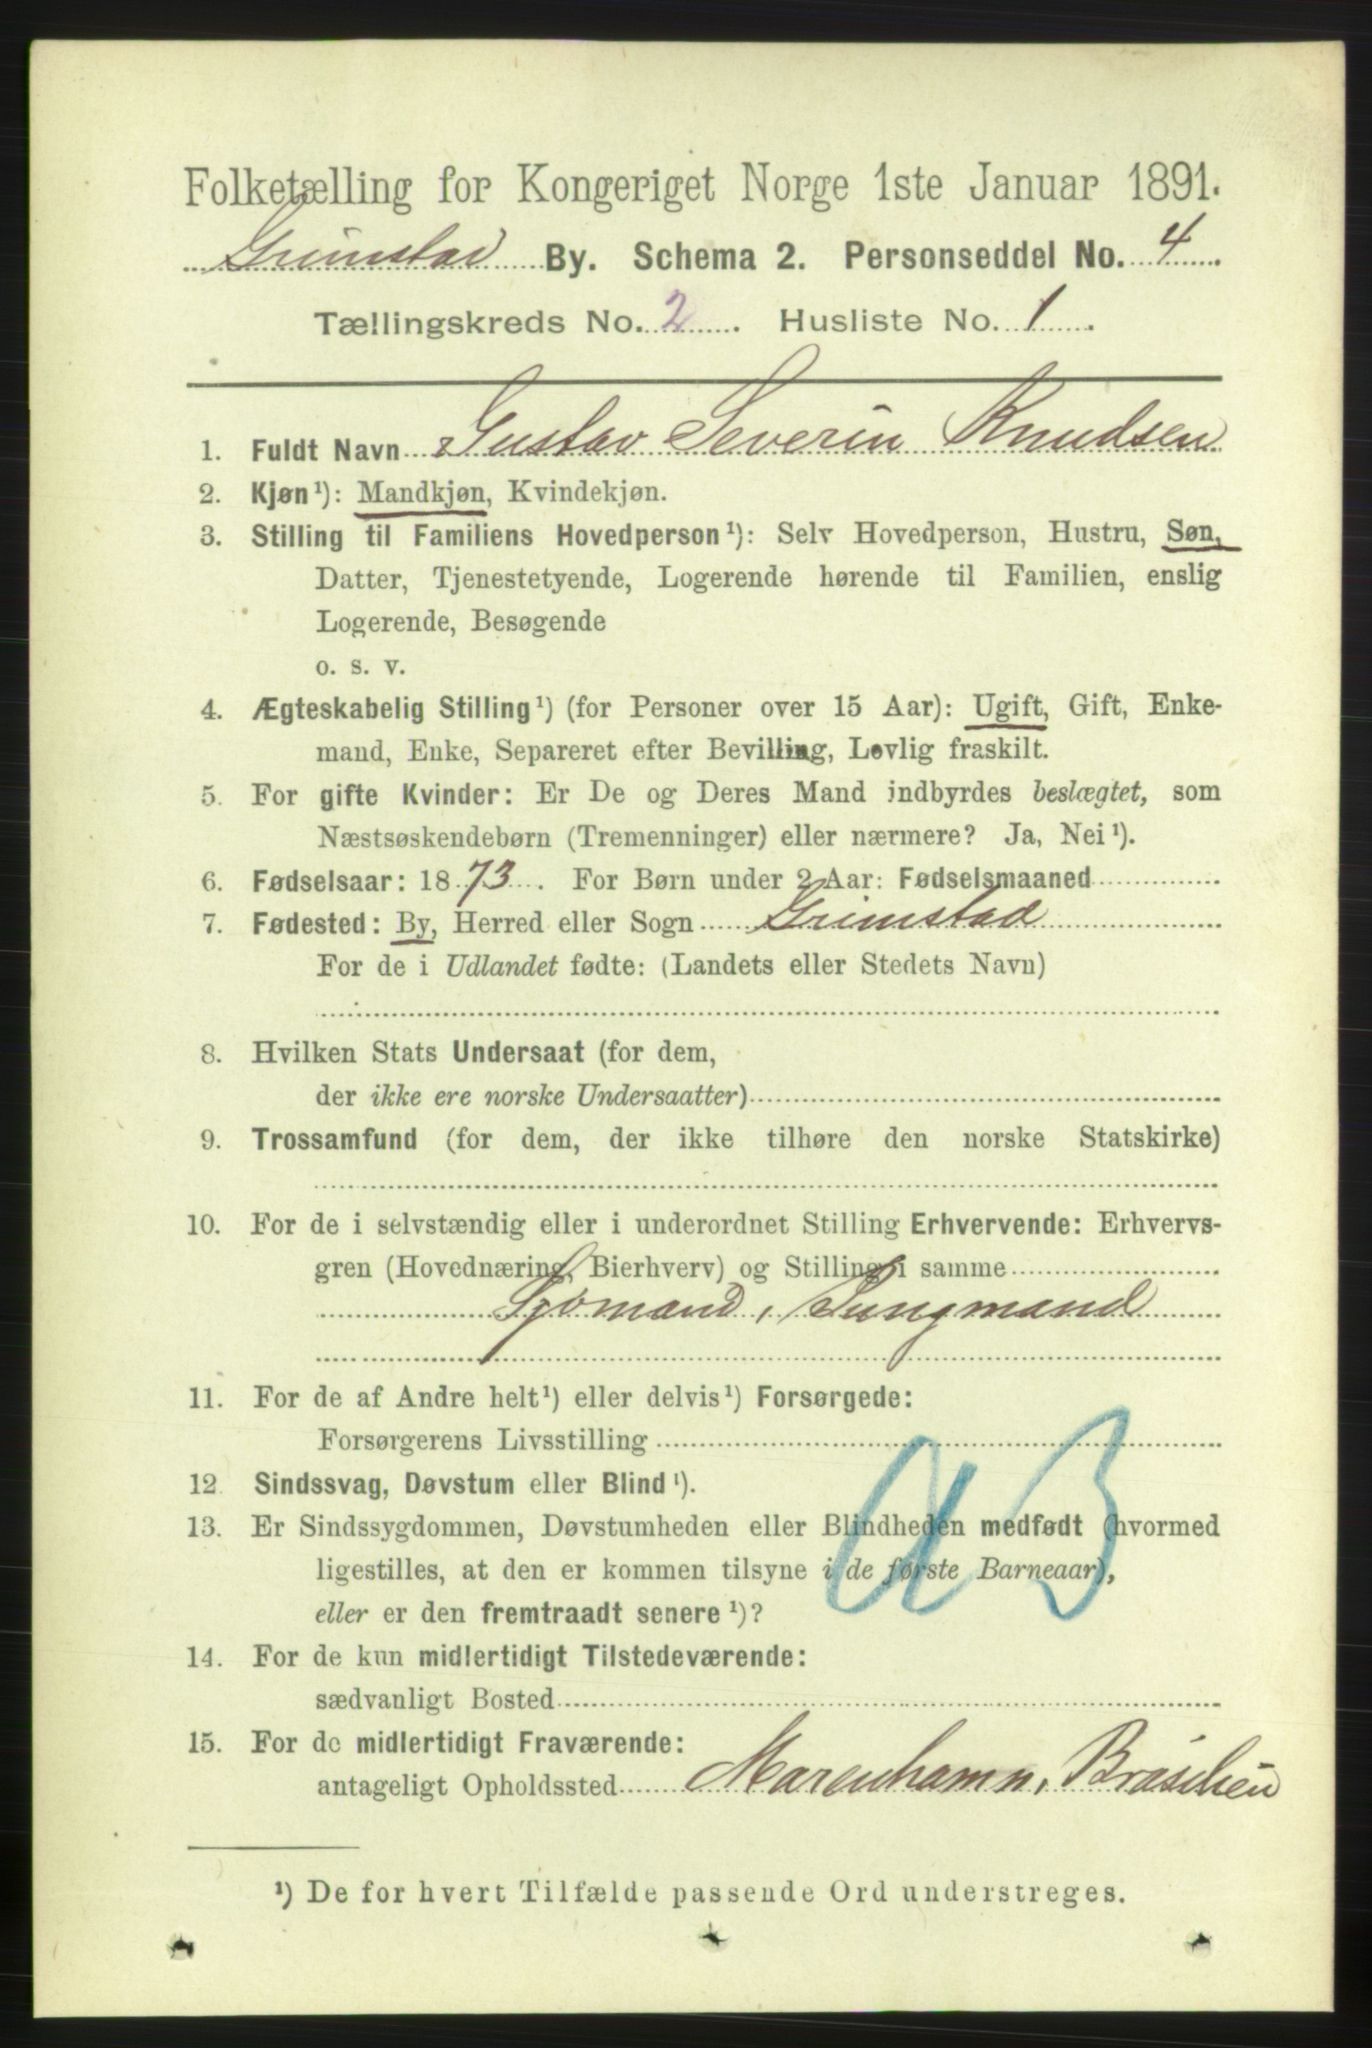 Folketælling for Kongeriget Norge 1ste Januar 1891.
Grimstad By. Schema 2. Personseddel No. 4
Tællingskreds No. 2. Husliste No. 1.
1. Fuldt Navn Gustav Severin Knudsen
2. Kjøn¹): Mandkjøn, Kvindekjøn.
3. Stilling til Familiens Hovedperson¹): Selv Hovedperson, Hustru, Søn,
Datter, Tjenestetyende, Logerende hørende til Familien, enslig
Logerende, Besøgende
o. s. v.
4. Ægteskabelig Stilling¹) (for Personer over 15 Aar): Ugift, Gift, Enke-
mand, Enke, Separeret efter Bevilling, Lovlig fraskilt.
5. For gifte Kvinder: Er De og Deres Mand indbyrdes beslægtet, som
Næstsøskendebørn (Tremenninger) eller nærmere? Ja, Nei¹).
6. Fødselsaar: 1873. For Børn under 2 Aar: Fødselsmaaned
7. Fødested: By, Herred eller Sogn Grimstad
For de i Udlandet fødte: (Landets eller Stedets Navn)
8. Hvilken Stats Undersaat (for dem,
der ikke ere norske Undersaatter)
9. Trossamfund (for dem, der ikke tilhøre den norske Statskirke)
10. For de i selvstændig eller i underordnet Stilling Erhvervende: Erhvervs-
gren (Hovednæring, Bierhverv) og Stilling i samme
Sjømand, Jungmand
11. For de af Andre helt¹) eller delvis¹) Forsørgede:
Forsørgerens Livsstilling
12. Sindssvag, Døvstum eller Blind¹).
13. Er Sindssygdommen, Døvstumheden eller Blindheden medfødt (hvormed
ligestilles, at den er kommen tilsyne i de første Barneaar),
eller er den fremtraadt senere¹)?
14. For de kun midlertidigt Tilstedeværende:
sædvanligt Bosted
15. For de midlertidigt Fraværende:
antageligt Opholdssted Marenhamn, Brasilien
¹) De for hvert Tilfælde passende Ord understreges.